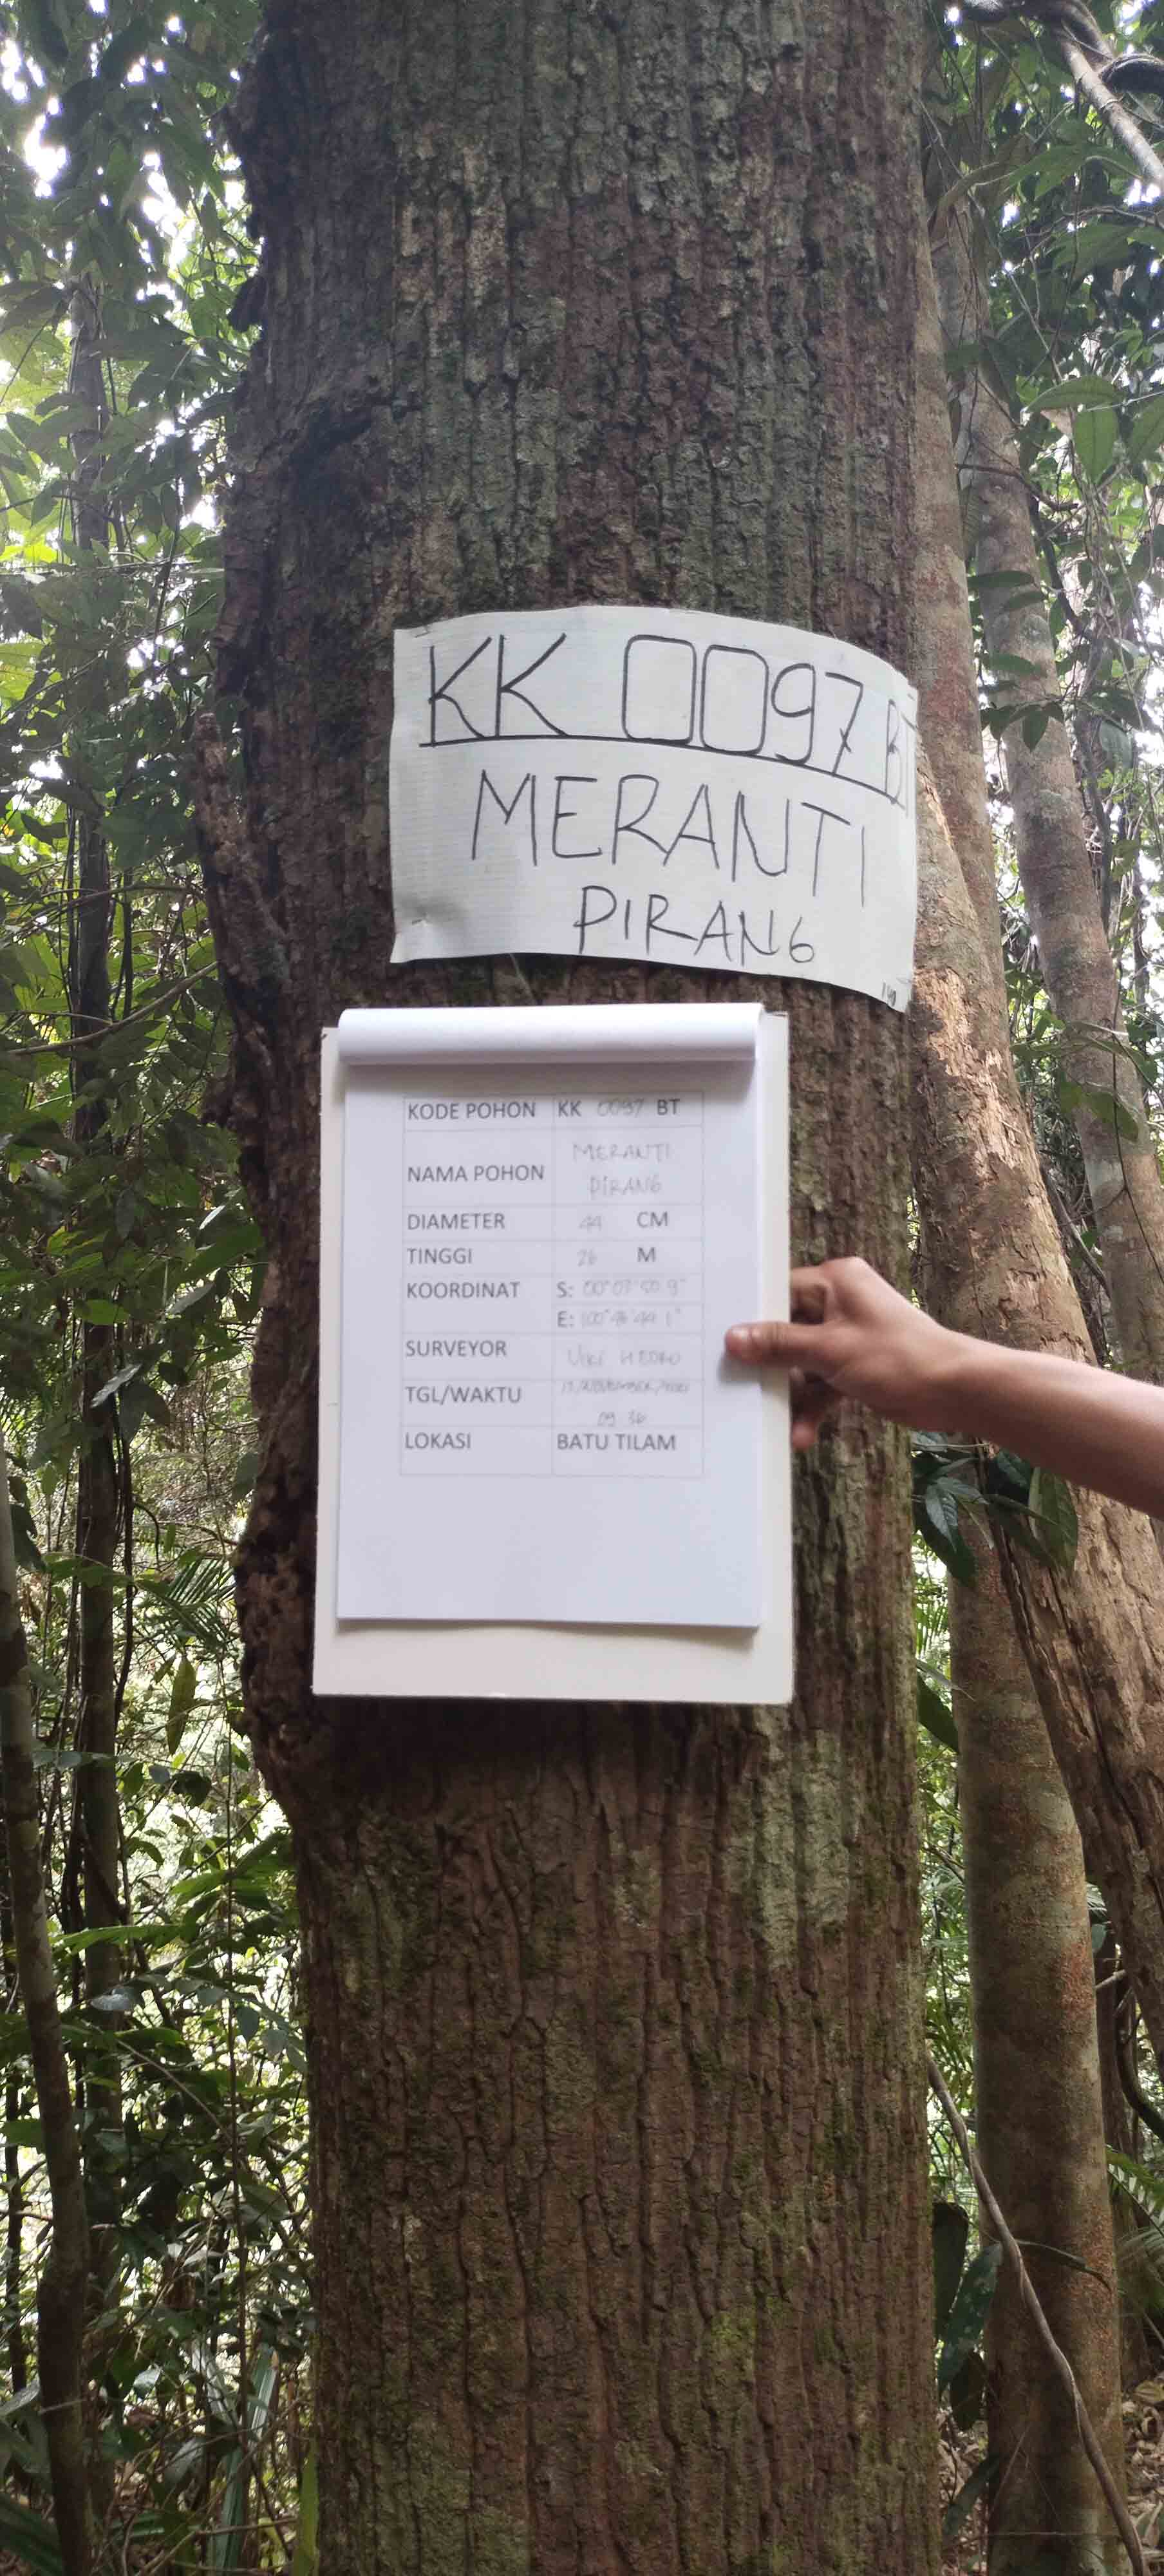 KK 0097 BT
MERANTI
PIRANG
KODE POHON KK 0097 BT
NAMA POHON MERANTI PIRANG
DIAMETER 44 CM
TINGGI 26 M
KOORDINAT S:
E:
SURVEYOR
TGL/WAKTU
LOKASI BATU TILAM